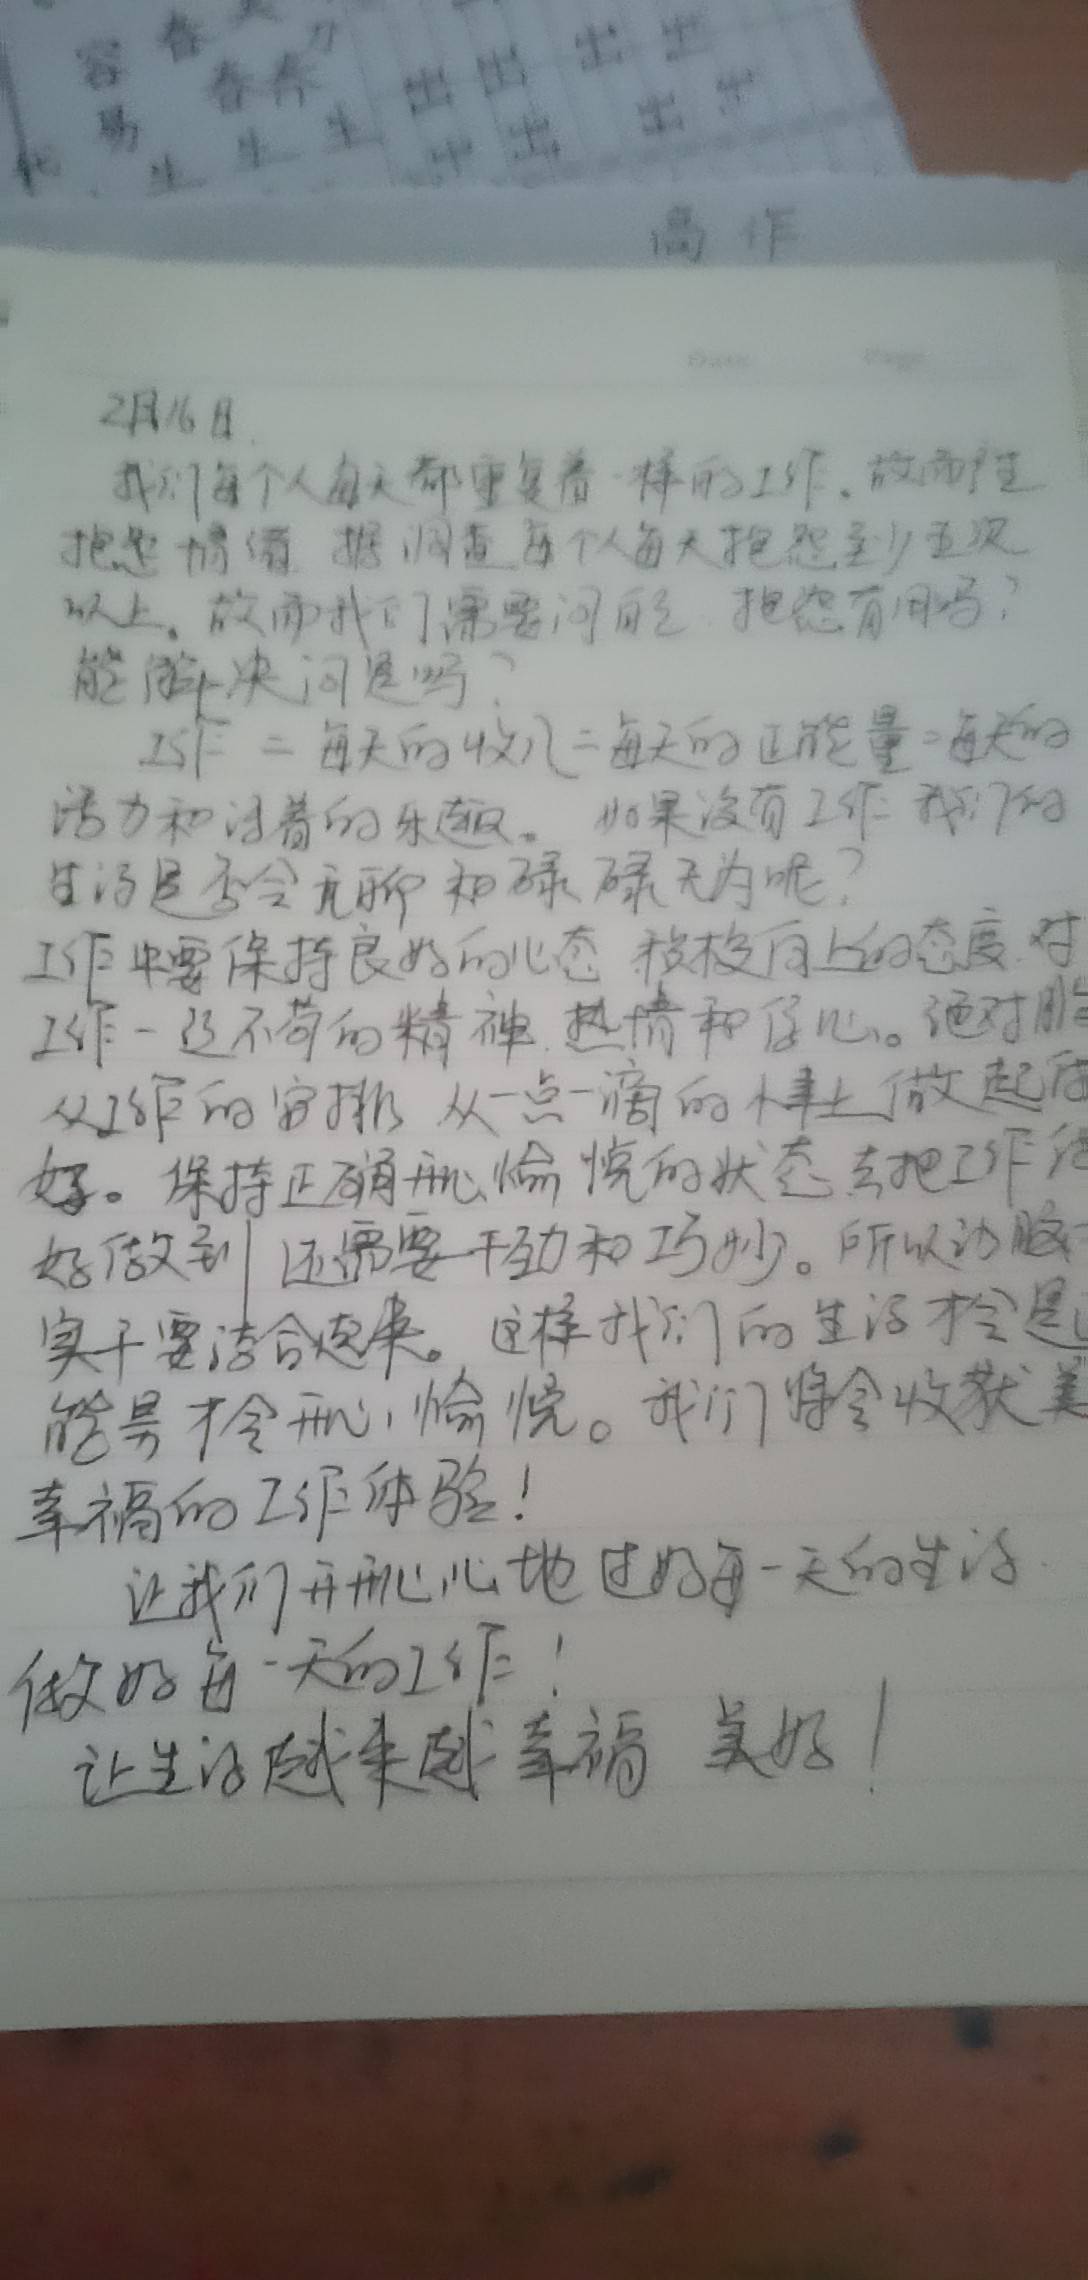 容 春
易 春 春
生 生 生
出 出 出 出
出 出 出
高 作
Date Page
2月16日.
我们每个人每天都重复着一样的工作。故而产生
抱怨情绪 据调查每个人每天抱怨至少五次
以上。故而我们需要问自己 抱怨有用吗?
能解决问题吗?
工作 = 每天的收入=每天的正能量=每天的
活力和活着的乐趣。 如果没有工作 我们的
生活是否会无聊和碌碌无为呢?
工作中要保持良好的心态 积极向上的态度.对
工作一丝不苟的精神.热情和信心。绝对服
从工作的安排 从一点一滴的事上做起做
好。保持正确开心愉悦的状态去把工作
好做到 还需要干劲和巧妙。所以动脑
实干要结合起来。这样我们的生活才会是
能量才会开心愉悦。我们将会收获美
幸福的工作体验!
让我们开开心心地过好每一天的生活.
做好每一天的工作!
让生活越来越幸福 美好!